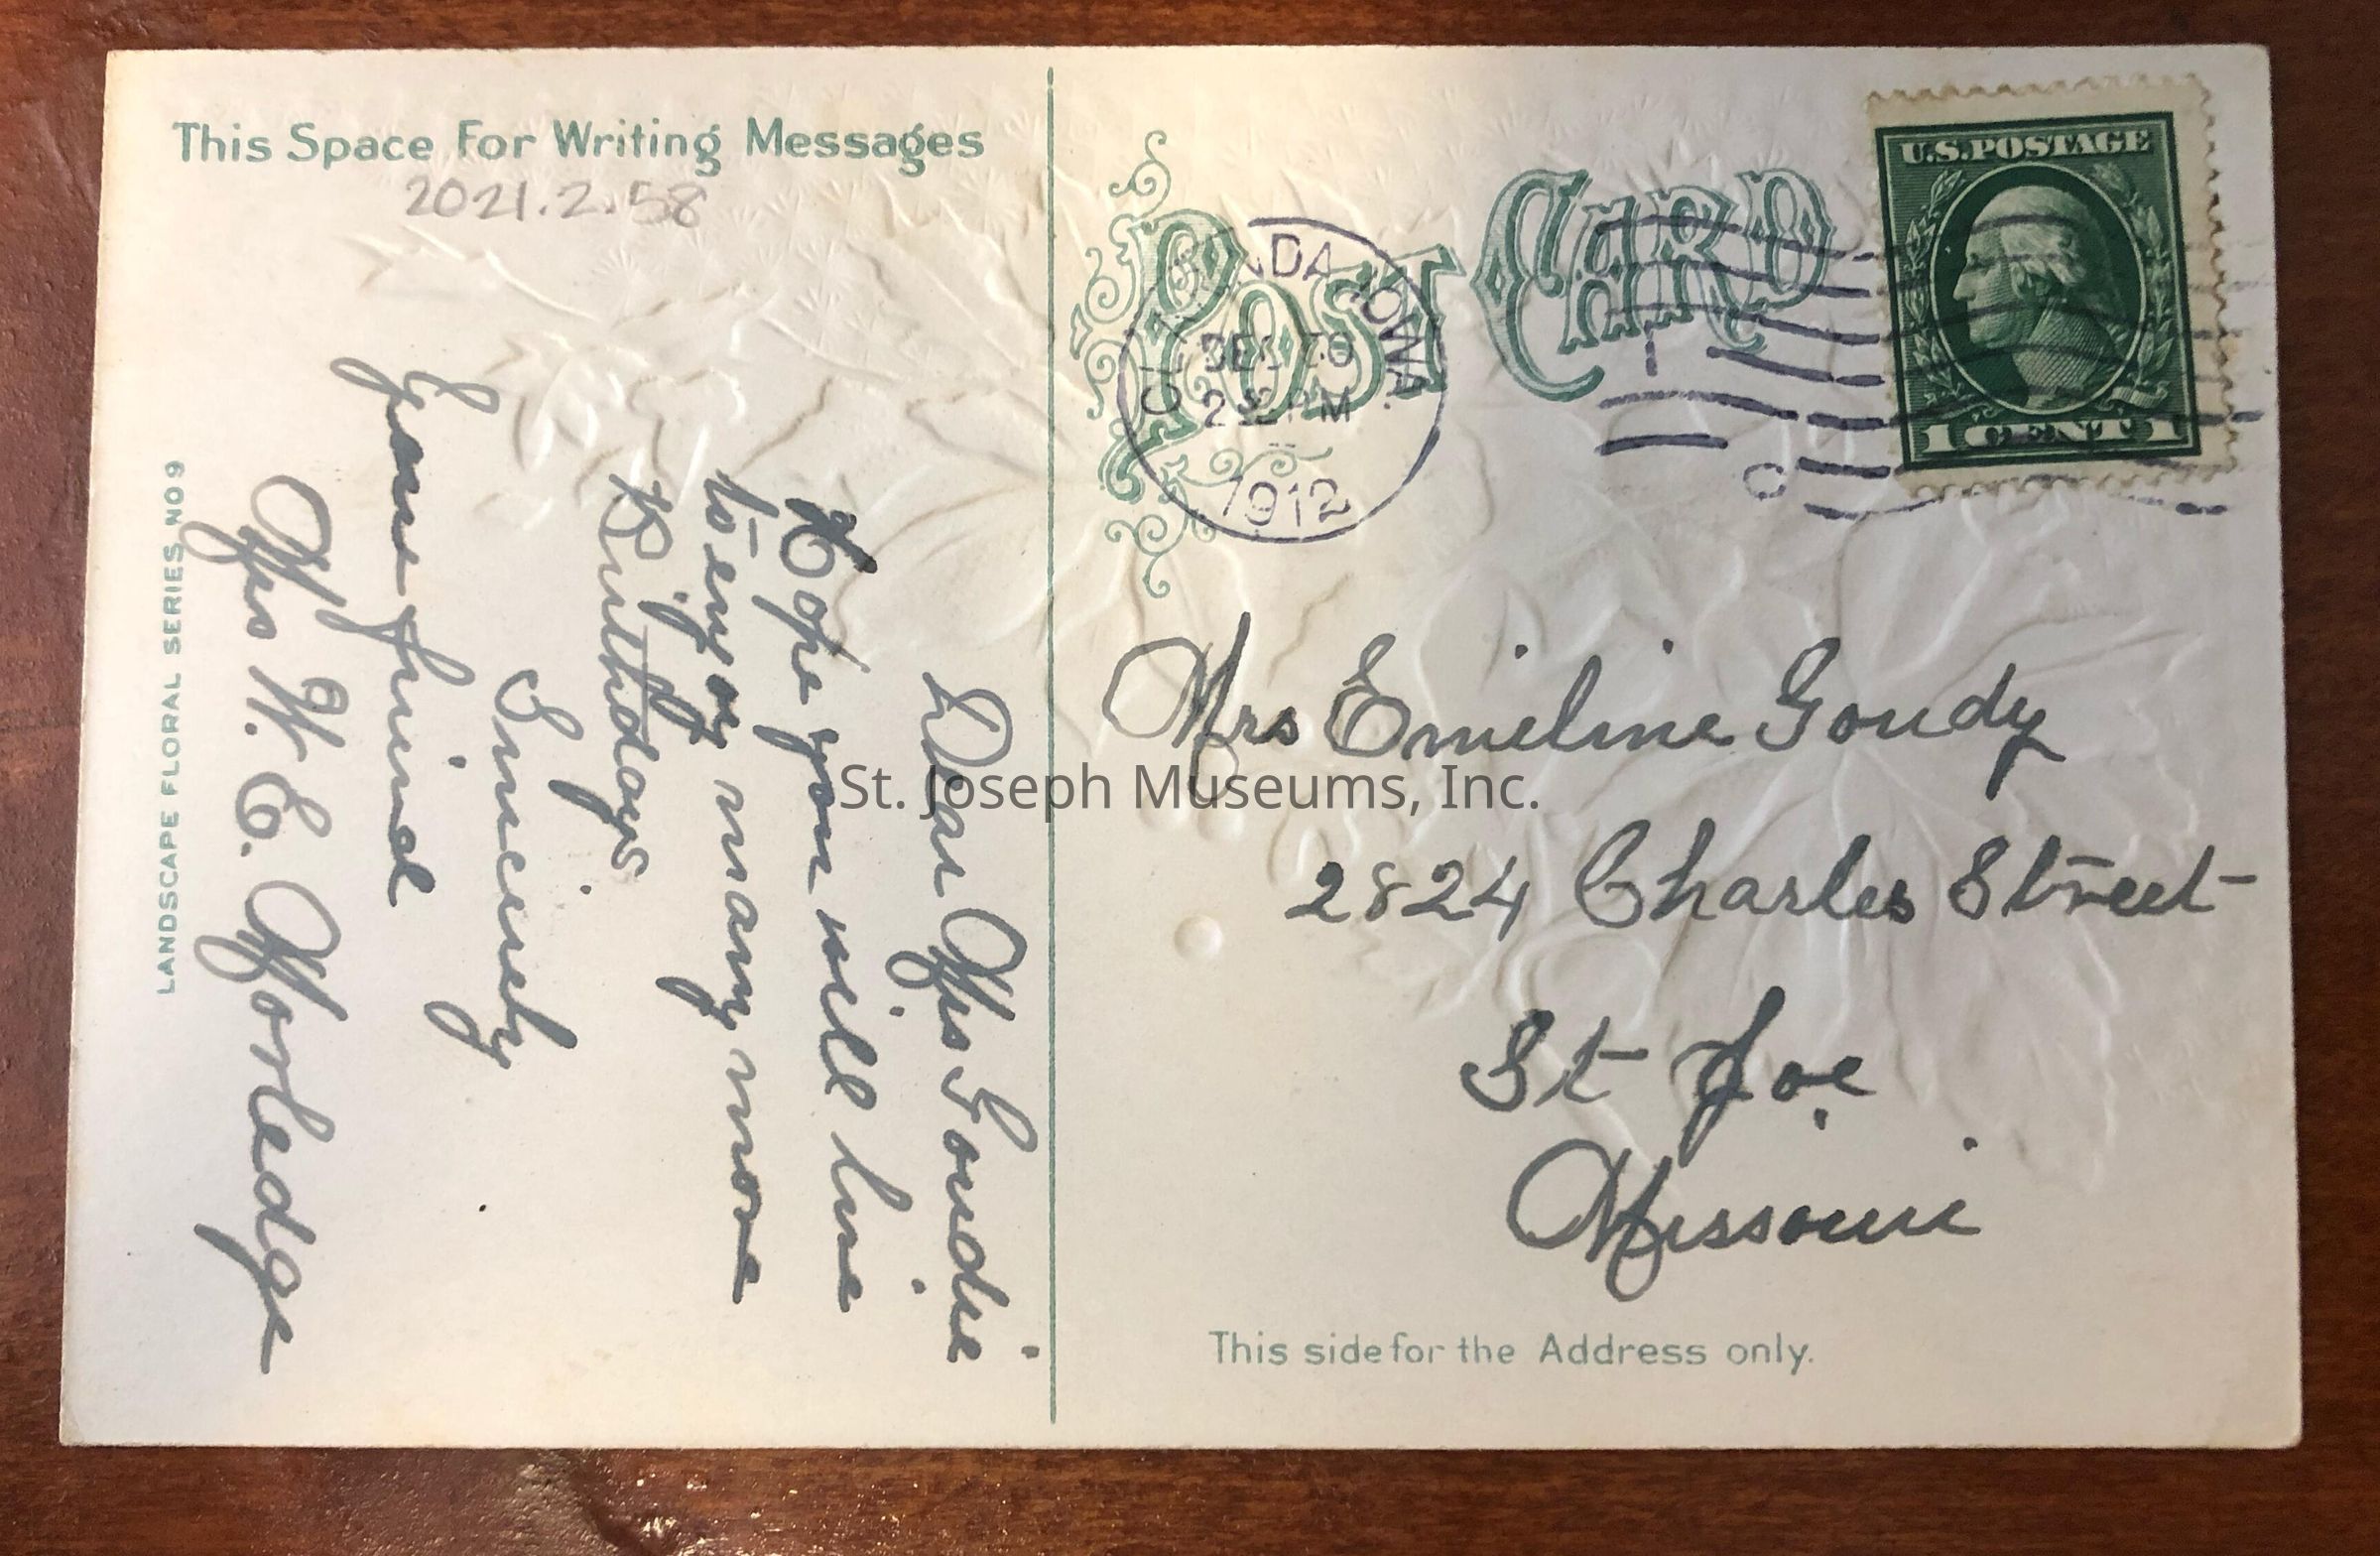 This Space For Writing Messages
2021.2.58
Dear Mrs Goudie
Hope you will live
to enjoy many more
Birthdays
Sincerely
Your friend
Mrs W. E. Worledge
LANDSCAPE FLORAL SERIES NO 9
POST CARD
IOWA.
2 PM
1912
U.S. POSTAGE
1 CENT 1
Mrs Emeline Goudy
2824 Charles Street
St Joe
Missouri
This side for the Address only.
St. Joseph Museums, Inc.